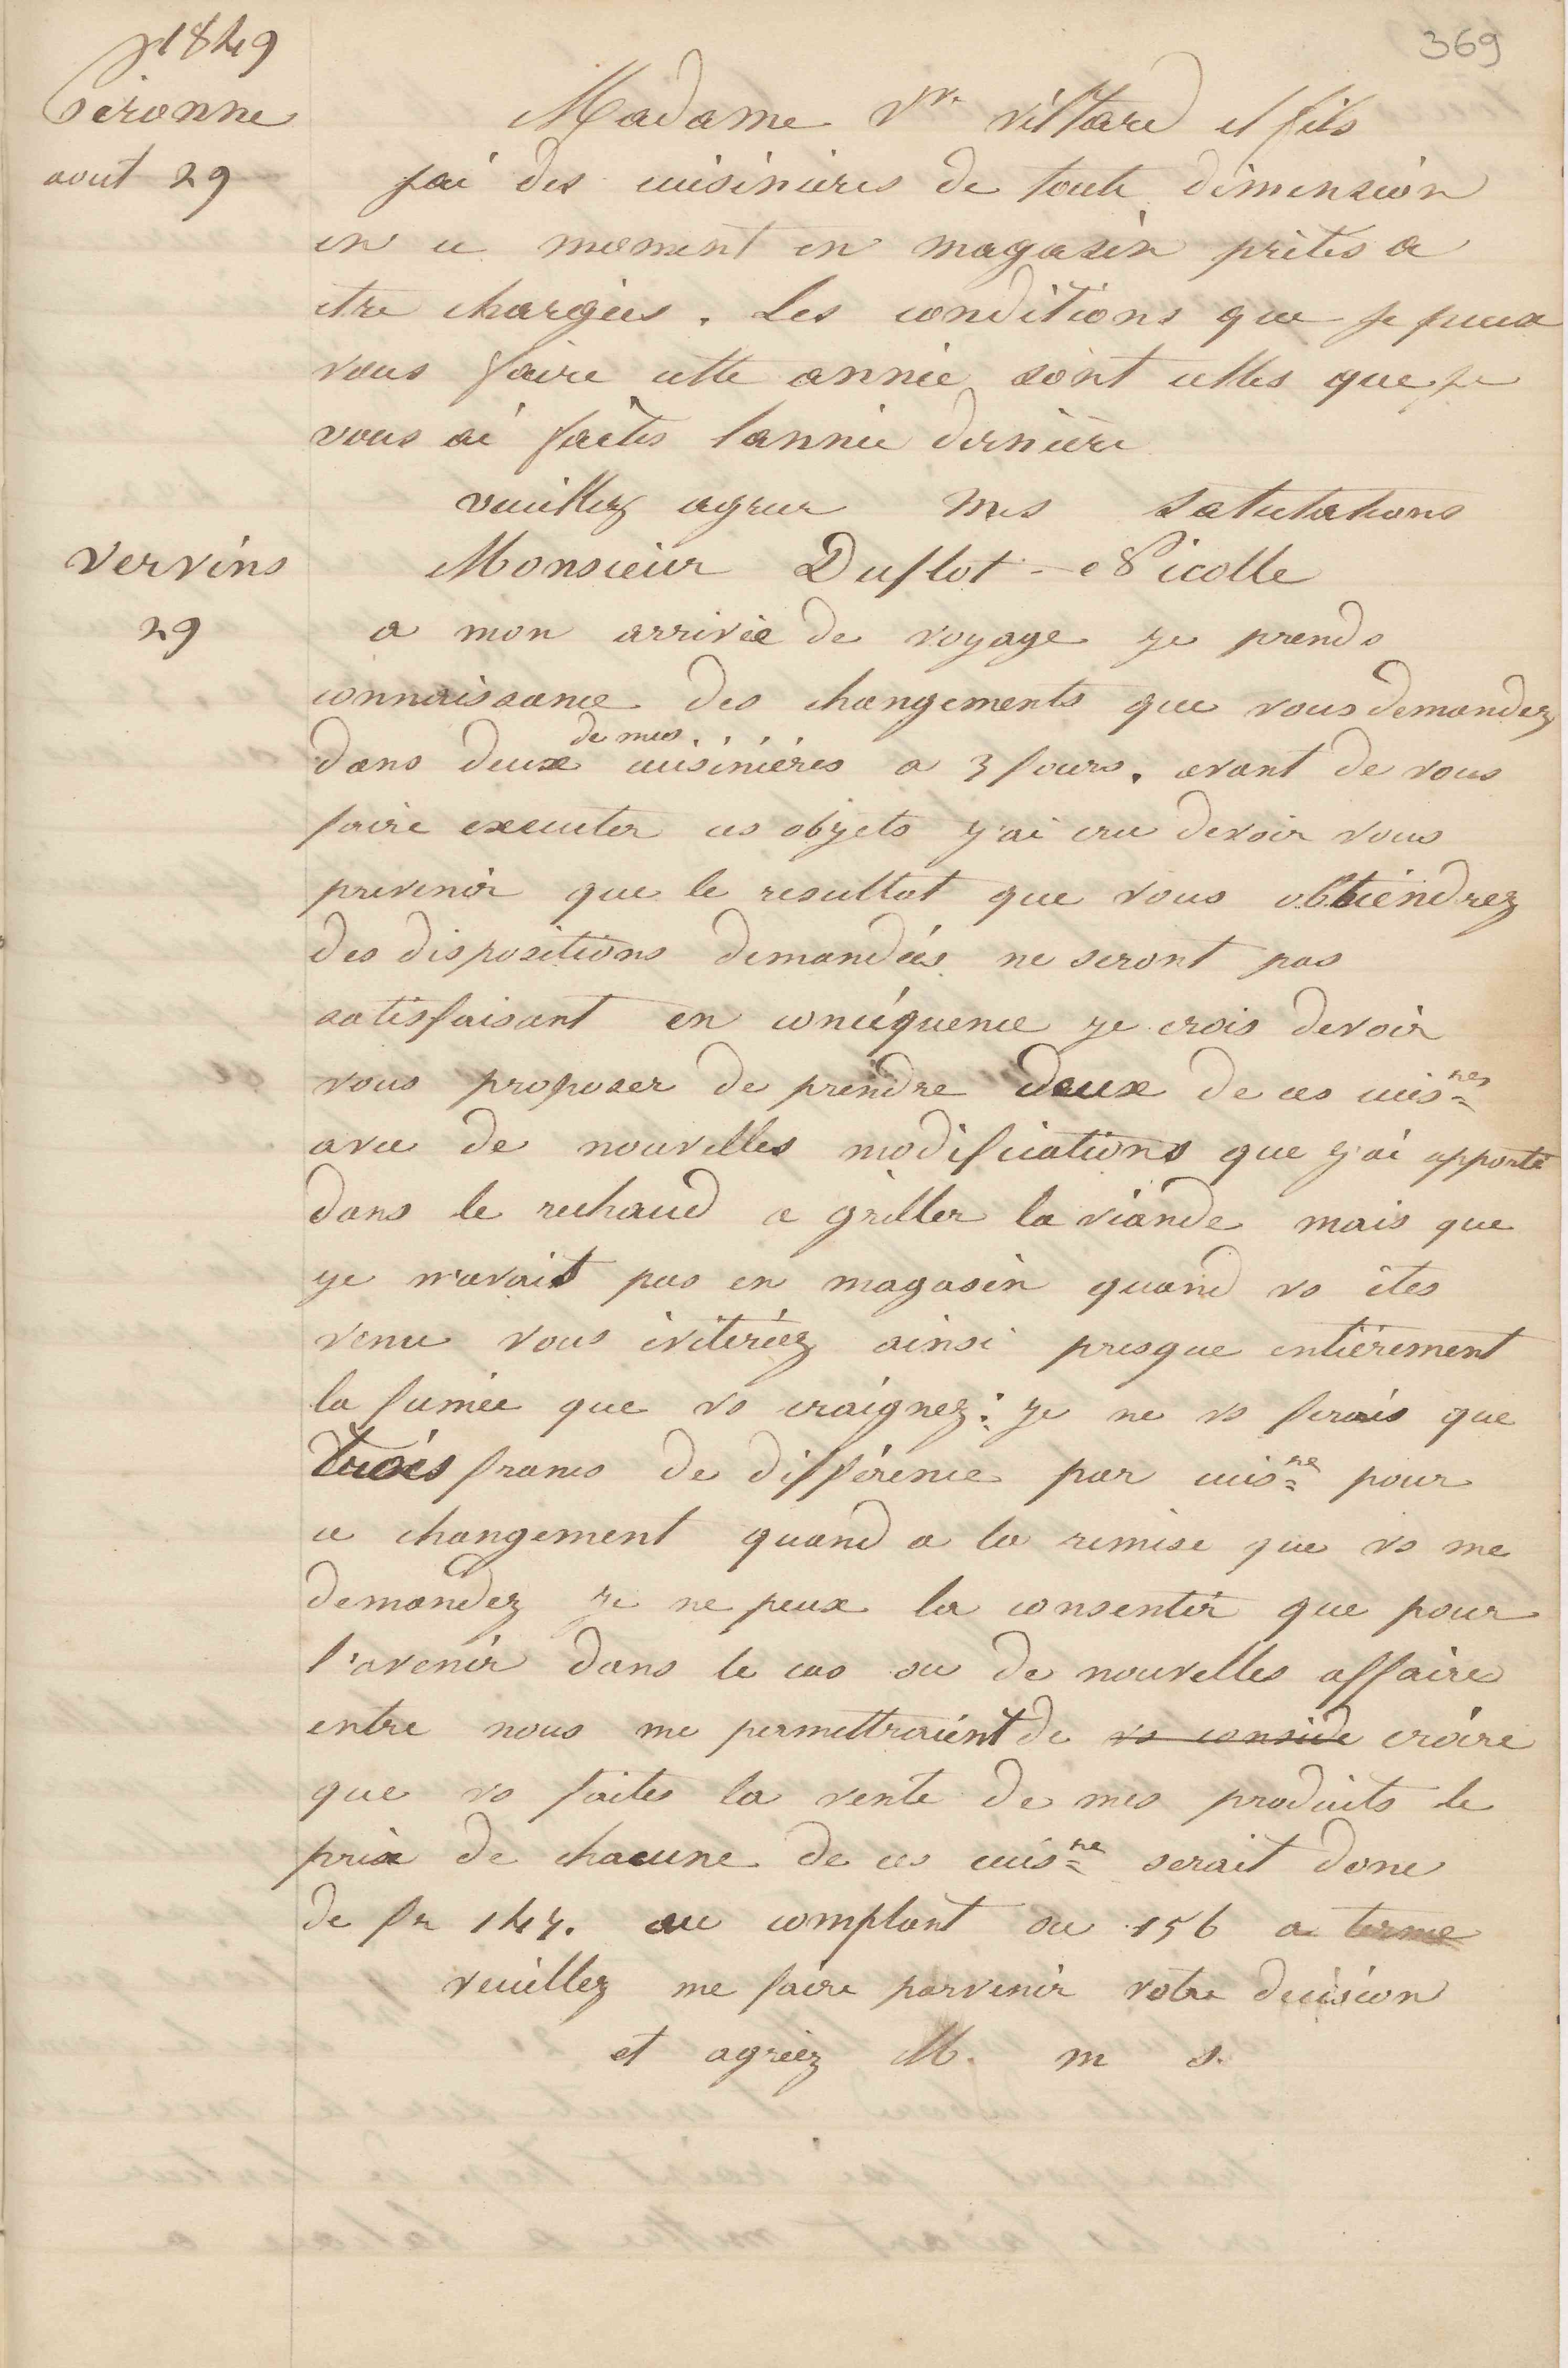 1849
369
Péronne
Madame Vve villard et fils
aout 29
jai des cuisinieres de toute dimension
en ce moment en magasin prètes a
etre chargées. Les conditions que je peux
vous faire cette année sont celles que je
vous ai faites lannée dernière
veuillez agreer mes salutations
Vervins
Monsieur Duflot-Picolle
29
a mon arrivée de voyage je prends
connaissance des changements que vous demandez
dans deux de mes cuisinières a 3 fours. avant de vous
faire executer ces objets j'ai cru devoir vous
prevenir que le resultat que vous obtiendrez
des dispositions demandées ne seront pas
satisfaisant en conséquence je crois devoir
vous proposer de prendre deux de ces cuisnes
avec de nouvelles modifications que j'ai apporté
dans le rechaud a griller la viande mais que
je n'avait pas en magasin quand vs êtes
venu vous éviteriez ainsi presque entièrement
la fumée que vs craignez: je ne vs ferais que
trois francs de différence par cuisne pour
ce changement quand a la remise que vs me
demandez je ne peux la consentir que pour
l'avenir dans le cas ou de nouvelles affaires
entre nous me permettraient de vs conside croire
que vs faites la vente de mes produits le
prix de chacune de ces cuisne serait donc
de fr 147. au comptant ou 156 a terme
veuillez me faire parvenir votre décision
et agréez M. m s.